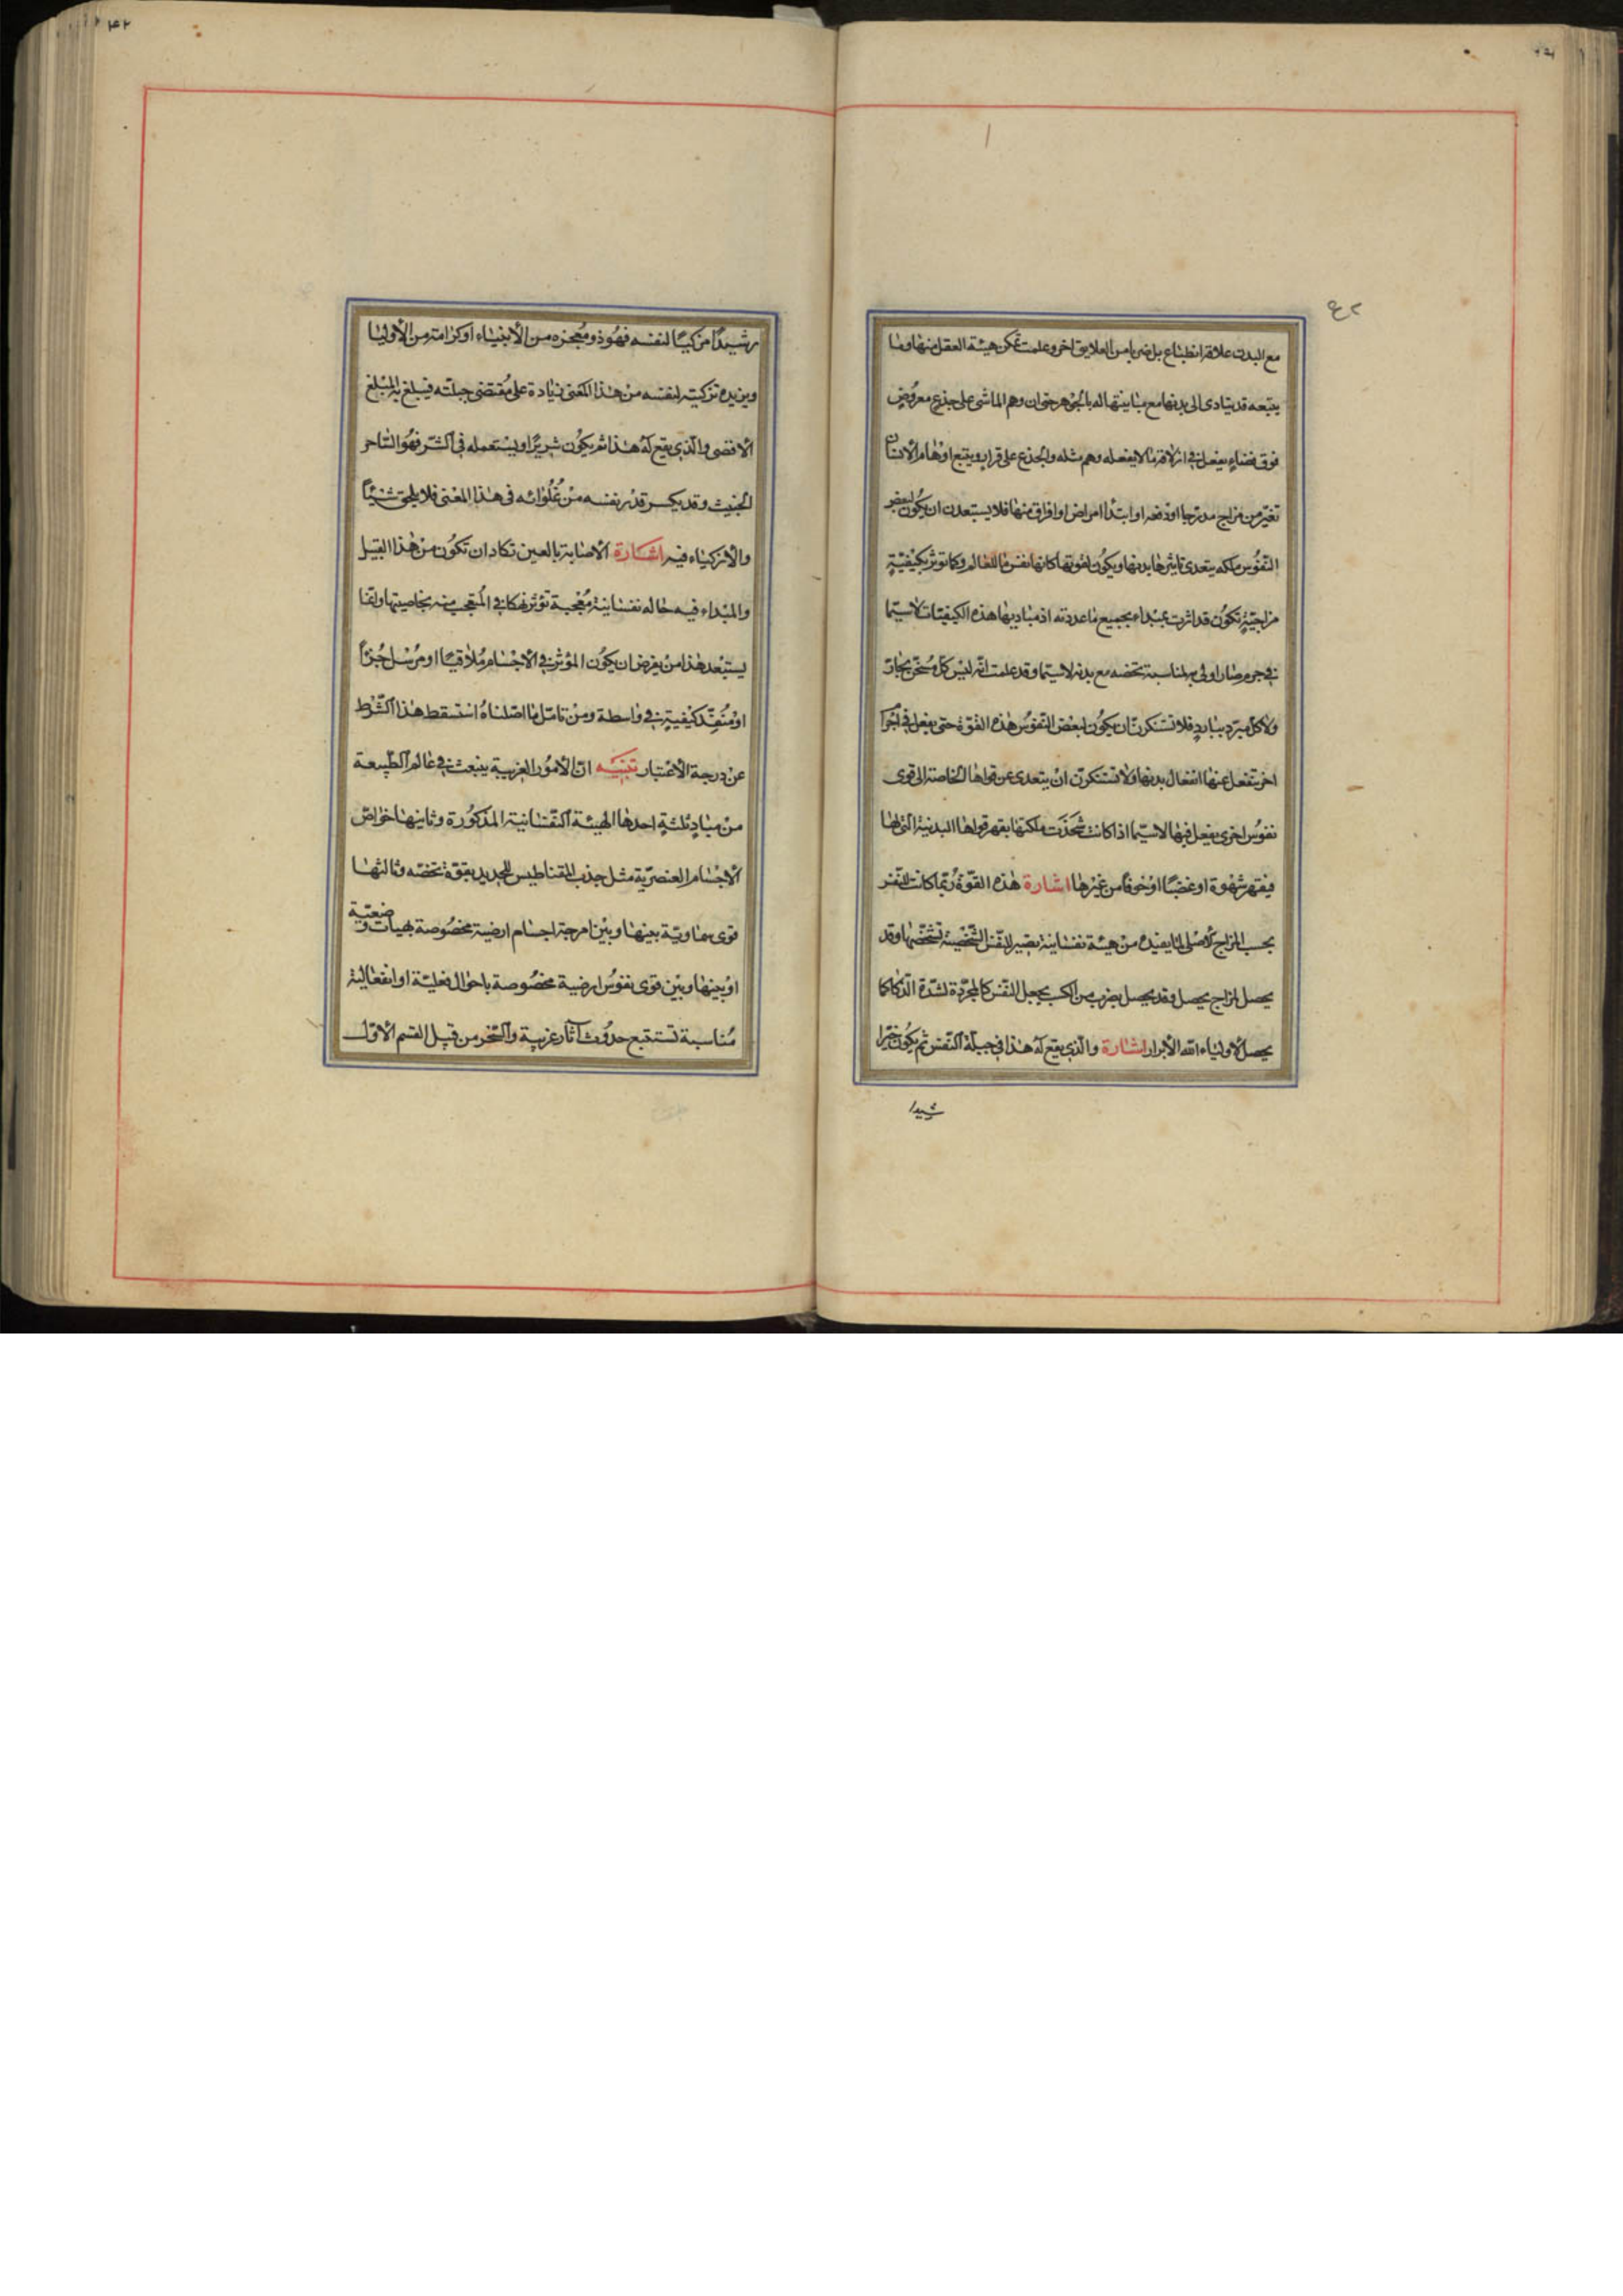 مع البدن علاقة انطباع بل ضربا من العلايق اخر وعلمت تمكن هيئة العقل منها وما
يتبعه قد يتادى الى بدنها مع مباينتها له بالجوهر حتى ان وهم الماشى على جذع معروض
فوق فضاء يفعل في ازلاقه ما لا يفعله وهم مثله والجذع على قرار ويتبع اوهام الانسان
تغير من مزاج مدرجا او دفعه او ابتدا امراض او افراق منها فلا يستبعدن ان يكون لبعض
النفوس ملكه يتعدى تاثيرها بدنها ويكون لقوتها كانها نفس ما للعالم وكما توثر بكيفيّة
مزاجيّة تكون قد اثرت بمبداء بجميع ما عددته اذ مباديها هذه الكيفيّات لاسيّما
في جرم صار اولى به لمناسبة تخصه مع بدنه لاسيّما وقد علمت انّه ليس كلّ مسخّن بحارّ
ولا كل مبرّد ببارد فلا تستنكرنّ ان يكون لبعض النفوس هذه القوة حتى يفعل في اجرا
اخر تنفعل عنها انفعال بدنها ولا تستنكرنّ ان يتعدى عن قواها الخاصة الى قوى
نفوس اخرى يفعل فيها لاسيّما اذا كانت شحذت ملكتها بقهر قواها البدنية التى لها
فيقهر شهوة او غضبًا او خوفا من غيرها اشارة هذه القوّة ربّما كانت للنفس
بحسب المزاج الاصلى لما يفيده من هيئة نفسانية يصير للنفس الشخصية تشخّصها وقد
يحصل لمزاج يحصل وقد يحصل بضرب من الكسب يجعل النفس كالمجرّدة لشدّة الذكا كما
يحصل لاولياء الله الابرار اشارة والّذي يقع له هذا في جبلّة النفس ثم يكون خيّرا
شيدا
رشيدًا مزكيًا لنفسه فهو ذو معجزه من الانبياء او كرامة من الاوليا
ويزيده تزكيته لنفسه من هذا المعنى زيادة على مقتضى جبلته فيبلغ به المبلغ
الاقصى والّذي يقع له هذا ثم يكون شريرًا ويستعمله في الشرّ فهو السّاحر
الخبيث وقد يكسر قدر نفسه من غلوائه فى هذا المعنى فلا يلحق شيئًا
والازكياء فيه اشارة الاصابة بالعين تكاد ان تكون من هذا القبيل
والمبداء فيه حاله نفسانية معجبة تؤثر نهكا في المتعجب منه بخاصيتها وانما
يستبعد هذا من يفرض ان يكون المؤثر في الاجسام ملاقيًا او مرسل جزءًا
او منفّذ كيفية في واسطة ومن تامّل ما اصّلناه استسقط هذا الشرط
عن درجة الاعتبار تنبيه انّ الامور الغريبة ينبعث في عالم الطّبيعة
من مبادٍ ثلثةٍ احدها الهيئة النفسانية المذكورة وثانيها خواصّ
الاجسام العنصريّة مثل جذب المقناطيس للحديد بقوّة تخصّه وثالثها
قوى سماويّة بينها وبين امزجة اجسام ارضية مخصوصة بهيات وضعيّة
او بينها وبين قوى نفوس ارضية مخصوصة باحوال فعليّة او انفعالية
مناسبة تستتبع حدوث آثار غريبة والسّحر من قبيل القسم الاوّل
۴۲